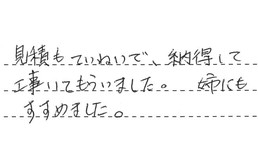 見積もていねいで、納得して
工事してもらいました。 姉にも
すすめました。